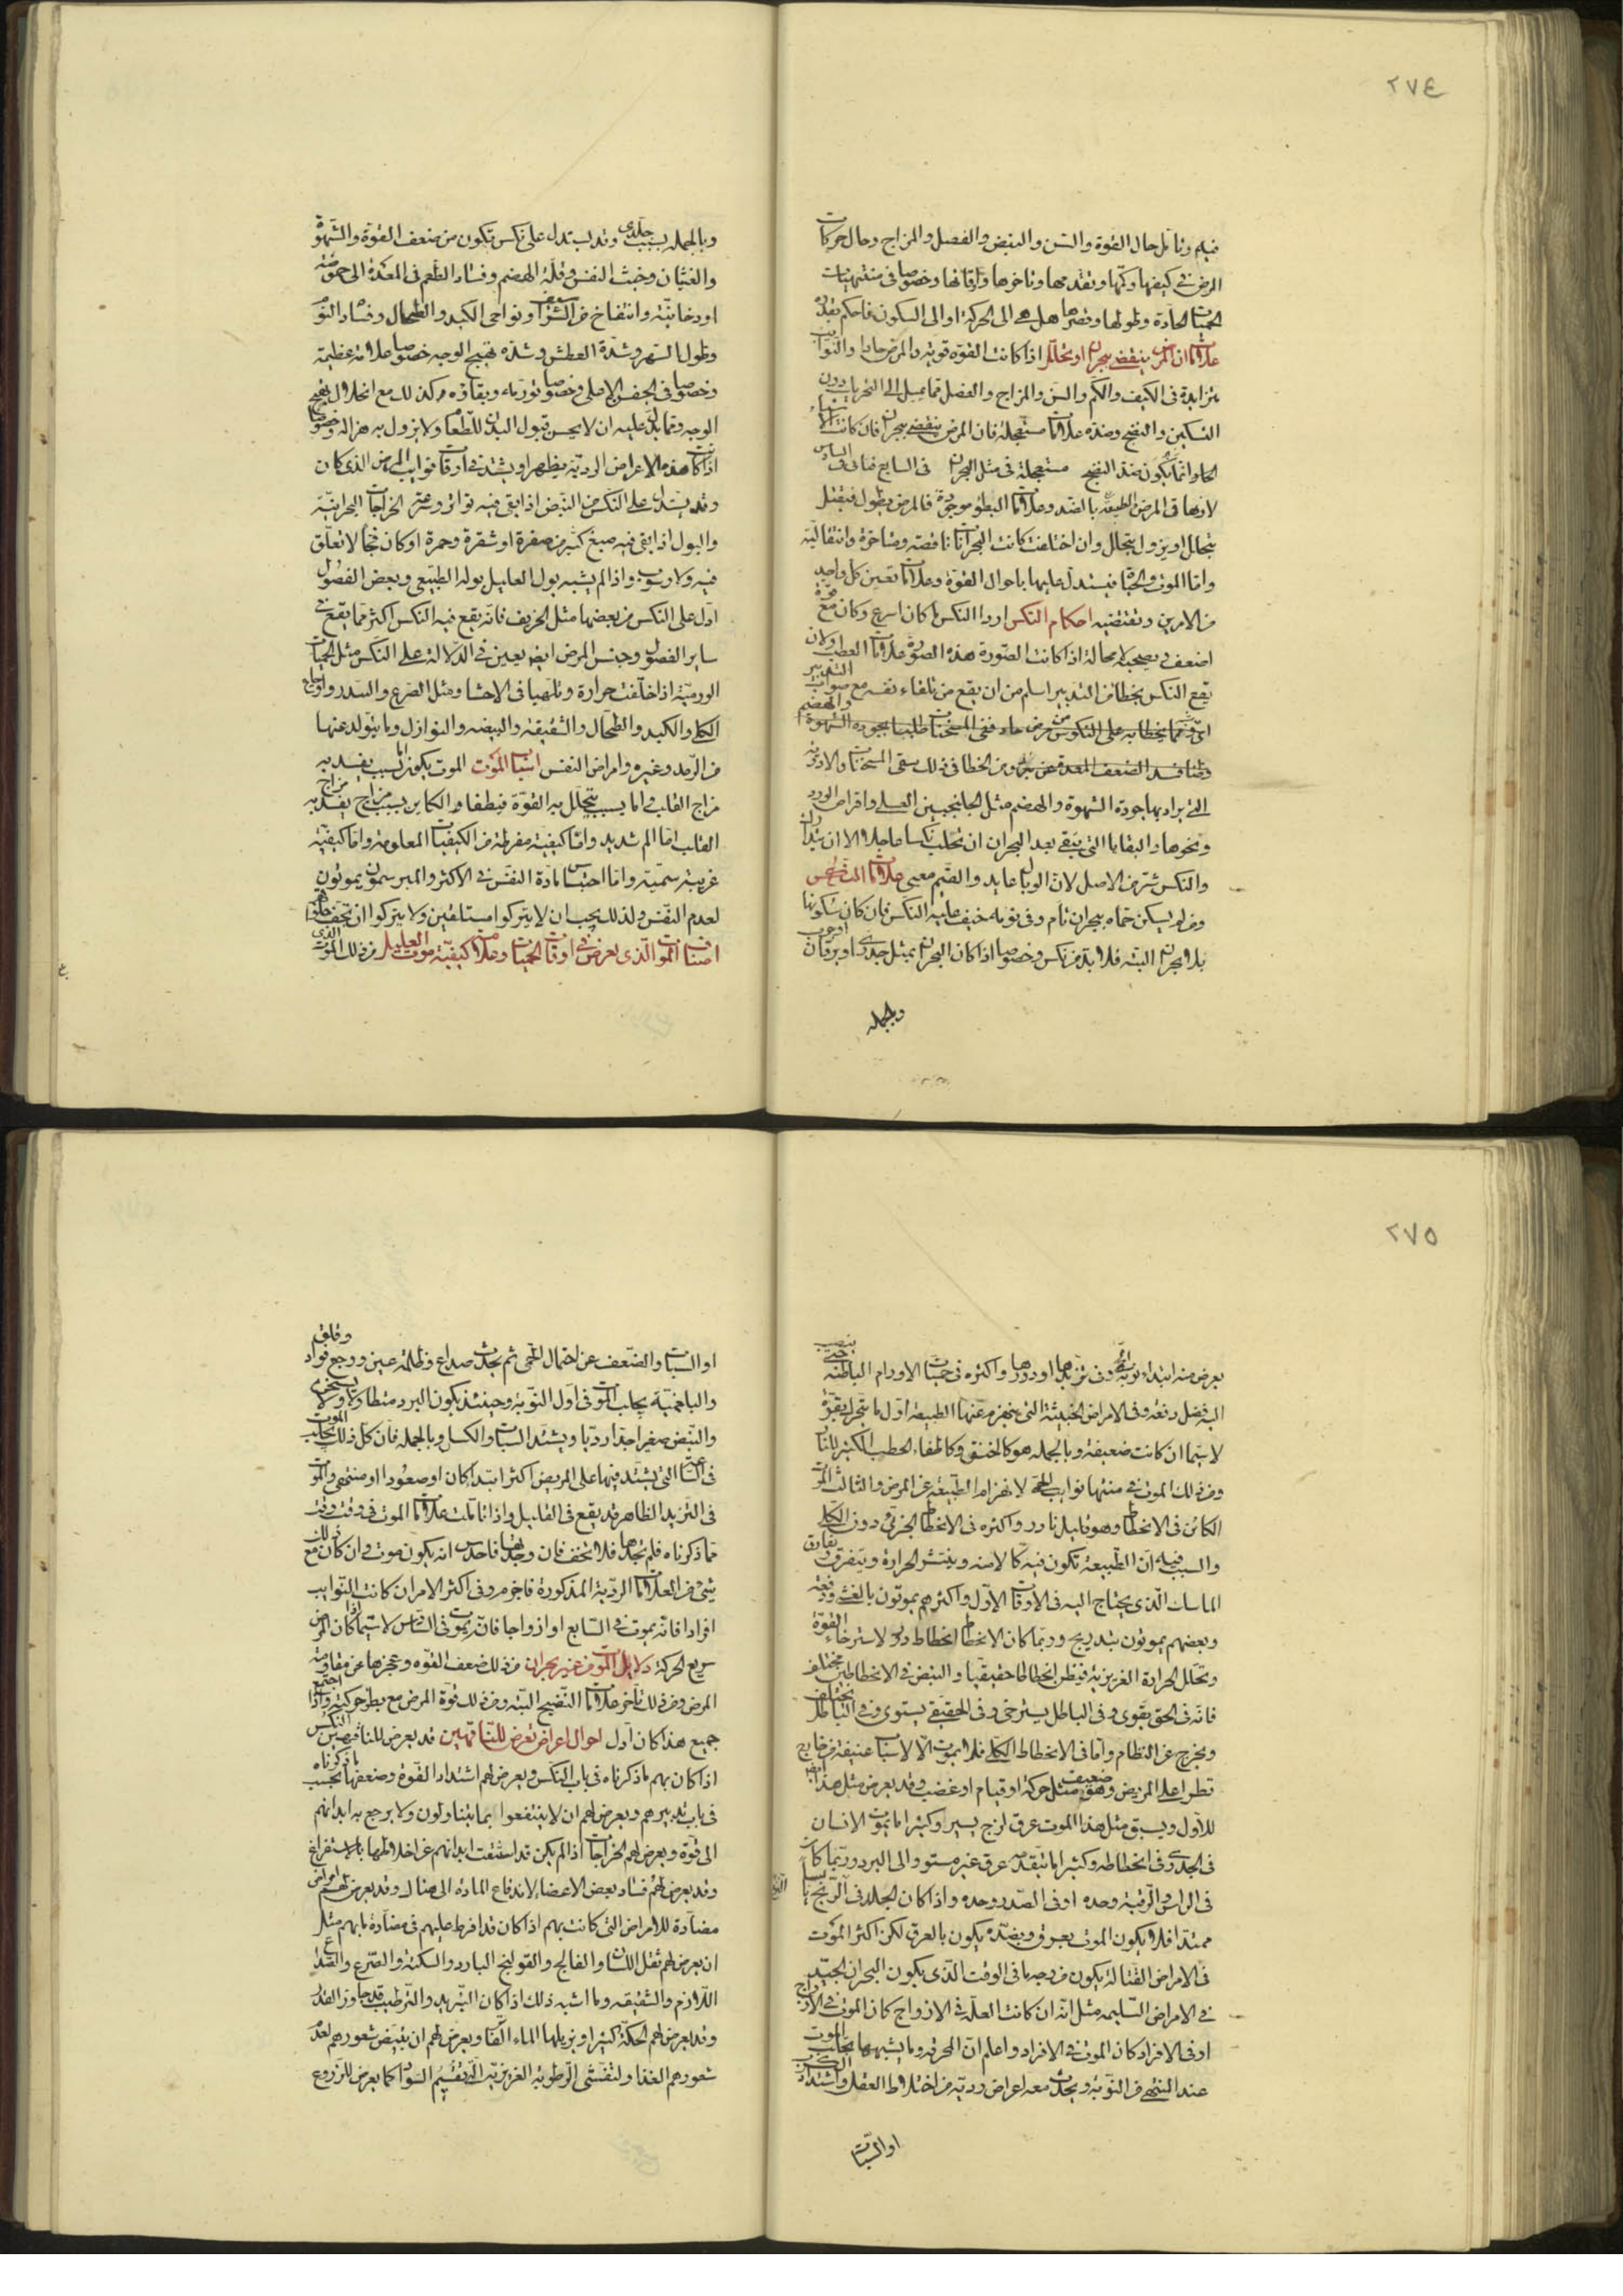 ٢٧٤
فيلم وتأمل حال القوة والسن والنبض والفصل والمزاج وحال حركات
المرض فى كيفها وكمها وتقدمها وتاخرها واوقاتها وخصوصا فى منتهيات
الحميات الحادة وطولها وقصرها هل هى الى الحركة او الى السكون فاحكم بقدره
علامات ان المرض ينقضى ببحران او بتحلل اذا كانت القوة قوية والمرض حادا والنوائب
متزايدة فى الكيف والكم والسن والمزاج والفصل مما يميل الى التحريك دون
التسكين والنضج وهذه علامات مستعجلة فان المرض ينقضى ببحران فان كانت
انما يكون عند النضج مستعجلة فى مثل البحران فى السابع فان فى السادس
لا وهما فى المرض الطبيعة بالضد وعلامات البطؤ موجودة فالمرض يطول فيقتل
بتحلل او يزول بتحلل وان اختلفت كانت البحرانات ناقصة ومتاخرة وانتقالية
واما الموت والحيوة فيستدل عليهما باحوال القوة وعلامات تعين كل واحد
من الامرين وتقتضيه احكام النكس اردا النكس ما كان اسرع وكان مع قوة
اضعف ويصحبه لا محالة اذا كانت الصورة هذه الصورة علامات العطب ولان
يقع النكس بخطا من التدبير اسلم من ان يقع من تلقاء نفسه مع صواب التدبير
ومما يخطا به على النكوس مرض حاد فسقى المسخنات طلبا بجودة الشهوة والهضم
وظنا فسد الضعف المعدة عن برد ومن الخطا فى ذلك سقى المسخنات والادوية
التى يراد بها جودة الشهوة والهضم مثل الجلنجبين العسلى واقراص الورد
ونحوها والبقايا التى تبقى بعد البحران ان تجلب نكسا عاجلا الا ان تتدارك
والنكس شر من الاصل لان الوبال عايد والقيم معيى علامات النكس
ومن لم يسكن حماه ببحران تام وفى يومه خيف عليه النكس فان كان سكونها
بلا بحران البتة فلا بد من نكس وخصوصا اذا كان البحران بمثل جدرى او يرقان او جرب
وبالجملة
وبالجملة بسبب جلدى وقد يستدل على نكس يكون من ضعف القوة والشهوة
والغثيان وخبث النفس وقلة الهضم وفساد الطعم فى المعدة الى حموضة
او دخانية وانتفاخ من الشراسيف ونواحى الكبد والطحال وفساد النوم
وطول السهر وشدة العطش وشدة تهيج الوجه خصوصا علامة عظيمة
وخصوصا فى الجفن الاعلى وخصوصا تورمه وبقاؤه كذلك مع انحلال تهيج
الوجه ومما يدل عليه ان لا يحسن قبول البدن للطعام ولا يزول به هزاله وخصوصا
اذا كانت هذه الاعراض الردية يظهر او يشتد فى اوقات نوايب المرض الذى كان
وقد يستدل على النكس من النبض اذا بقى فيه تواتر وعن الخراجات البحرانية
والبول اذا بقى فيه صبغ كثير من صفرة او شقرة وحمرة او كان فجا لا تعلق
فيه ولا رسوب واذا لم يشبه بول العليل بوله الطبيعى وبعض الفصول
ادل على النكس من بعضها مثل الخريف فانه يقع فيه النكس اكثر مما يقع فى
ساير الفصول وجنس المرض ايضا يعين فى الدلالة على النكس مثل الحميات
الورمية اذا خلفت حرارة وتلهبا فى الاحشا ومثل الصرع والسدر واوجاع
الكلى والكبد والطحال والشقيقة والبيضة والنوازل وما يتولد عنها
من الرمد وغيره وامراض النفس اسباب الموت الموت يكون اما بسبب يفسد به
مزاج القلب واما بسبب تتحلل به القوة فيطفا والكاين بسبب مزاج يفسد به مزاج
القلب اما الم شديد واما كيفية مفرطة من الكيفيات المعلومة واما كيفية
غريبة سمية واما احتباس مادة النفس فى الاكثر والمبرسمون يموتون
لعدم النفس ولذلك يجب ان لا يتركوا مستلقين ولا يتركوا ان تجف حلقوهم
اصناف الموت الذى يعرض فى اوقات الحميات وعلامة كيفية موت العليل فمن ذلك الموت الذى
٢٧٥
يعرض منه ابتداء نوبة الحمى وفى تزيدها او دورها واكثره فى حميات الاورام الباطنة حتى ينصب
اليه فضل دفعة وفى الامراض الخبيثة التى ينهزم عنها الطبيعة اول ما تتحرك بقوة
لا سيما ان كانت ضعيفة وبالجملة هو كالخنق وكاطفاء الحطب الكثير للنار
ومن ذلك الموت فى منتهى نوايب الحمى لانهزام الطبيعة عن المرض والثالث الموت
الكائن فى الانحطاط وهو قليل نادر واكثره فى الانحطاط الجزئى دون الكلى
والسبب فيه ان الطبيعة تكون فيه كالامنة وينتشر الحرارة ويتفرق ويفارق
الماسك الذى يحتاج اليه فى الاوقات الاول واكثرهم يموتون بالغشى دفعة
وبعضهم يموتون بتدريج وربما كان الانحطاط انحطاط دور لاسترخاء القوة
وتحلل الحرارة الغريزية فيظن انحطاطا حقيقيا والنبض فى الانحطاطين مختلف
فانه فى الحق يقوى وفى الباطل يسترخى وفى الحقيقى يستوى وفى الباطل يختلف
ويخرج عن النظام واما فى الانحطاط الكلى فلا يموت الا لاسباب عنيفة من خارج
تطرا على المريض وهو ضعيف مثل حركة او قيام او غضب وقد يعرض مثل هذا ايضا
للاول ويسبق مثل هذا الموت عرق لزج يسير وكثيرا ما يموت الانسان
فى الجدرى وفى انحطاطه وكثيرا ما يتقدمه عرق غير مستو والى البرد وربما كان
فى الراس والرقبة وحده او فى الصدر وحده واذا كان الجلد فى النزع يابسا
ممتدا فلا يكون الموت بعرق وبضده يكون بالعرق لكن اكثر الموت
فى الامراض القتالة يكون من وجه ما فى الوقت الذى يكون البحران الجيد
فى الامراض السليمة مثل انه ان كانت العلة فى الازواج كان الموت فى الازواج
او فى الافراد كان الموت فى الافراد واعلم ان المحرقة وما يشبهها يجلب الموت
عند المنتهى من النوبة ويحدث معه اعراض ردية من اختلاط العقل واشتداد الكرب
او السبات
او السبات والضعف عن احتمال الحمى ثم يحدث صداع وظلمة عين ووجع فواد وقلق
والبلغمية يجلب الموت فى اول النوبة وحينئذ يكون البرد متطاولا ولا يسخن
والنبض صغيرا جدا رديا ويشتد السبات والكسل وبالجملة فان كل ذلك يجلب الموت
فى الساعة التى يشتد فيها على المريض اكثر ابتدا كان او صعودا او منتهى والموت
فى التزيد الظاهر قد يقع فى القليل واذا تاملت علامات الموت فى وقت وقت
مما ذكرناه فلم تجدها فلا تخف فان وجدتها فاحدس انه يكون موت وان كان مع ذلك
شئ من العلامات الردية المذكورة فاجزم وفى اكثر الامر ان كانت النوايب
افرادا فانه يموت فى السابع او ازواجا فانه يموت فى السادس لا سيما اذا كان المرض
سريع الحركة دلايل الموت من غير بحران من ذلك ضعف القوة وعجزها عن مقاومة
المرض ومن ذلك تاخر علامات النضج البتة ومن ذلك قوة المرض مع بطؤ حركته واذا اجتمع
جميع هذا كان ادل احوال اعراض تعرض للناقهين قد يعرض للناقهين النكس
اذا كان بهم ما ذكرناه فى باب النكس ويعرض لهم اشتداد القوة وضعفها بحسب ما ذكرناه
فى باب تدبيرهم ويعرض لهم ان لا ينتفعوا بما يتناولون ولا يرجع به ابدانهم
الى قوة ويعرض لهم الخراجات اذا لم يكن قد استنقت ابدانهم عن اخلاطها بالاستفراغ
وقد يعرض لهم فساد بعض الاعضاء لاندفاع المادة الى هناك وقد يعرض لهم امراض
مضادة للامراض التى كانت بهم اذا كان قد افرط عليهم فى مضادة ما بهم مثل
ان يعرض لهم ثقل اللسان والفالج والقولنج البارد والسكتة والصرع والصداع
اللازم والشقيقة وما اشبه ذلك اذا كان التبريد والترطيب قد جاوز القدر
وقد يعرض لهم الحكة كثيرا ويزيلها الماء الفاتر ويعرض لهم ان يبيض شعورهم لعدم
شعورهم الغذا ولتفشى الرطوبة الغريزية التى تقيم السواد كما يعرض للزروع